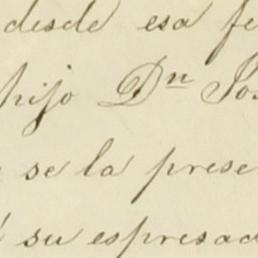 desde esa fe
hijo Dn Jo
se la prese
su espresad